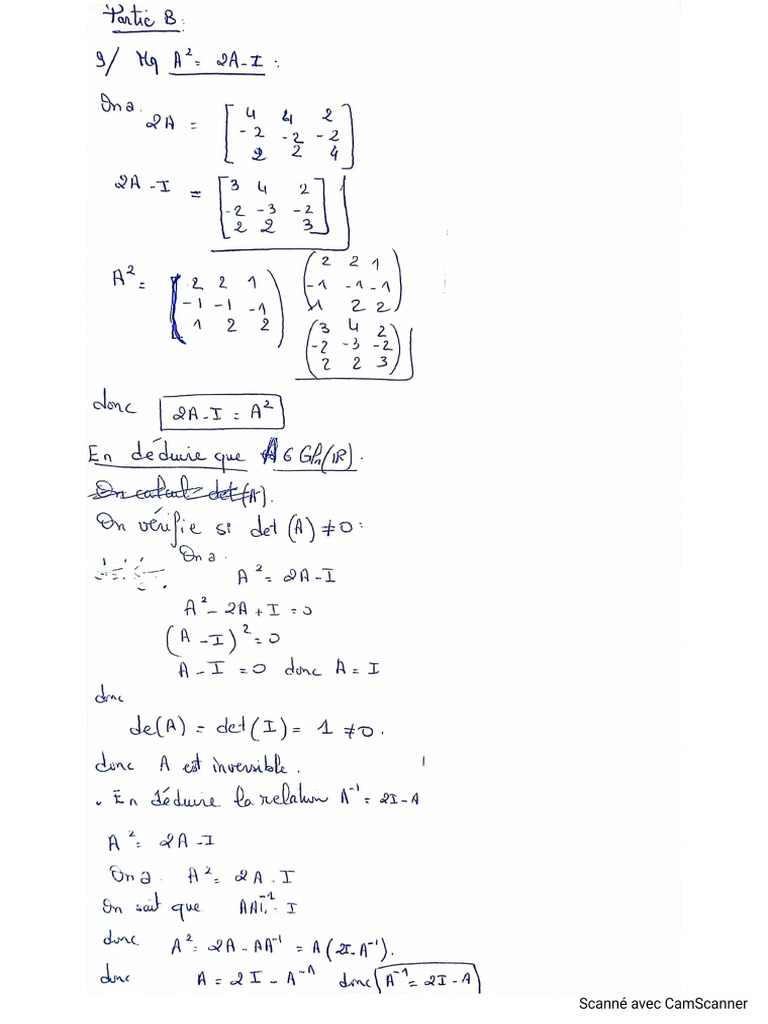 Partie B:
9/ Mq A² = 2A - I :
On a. 2A = [ 4 4 2
-2 -2 -2
2 2 4 ]
2A - I = [ 3 4 2
-2 -3 -2
2 2 3 ]
( 2 2 1
-1 -1 -1
1 2 2 )
A² = ( 2 2 1
-1 -1 -1
1 2 2 )
( 3 4 2
-2 -3 -2
2 2 3 )
donc 2A - I = A²
En déduire que A ∈ Gln(IR).
On calcul det(A).
On vérifie si det (A) ≠ 0 :
On a.
A² = 2A - I
A² - 2A + I = 0
(A - I)² = 0
A - I = 0 donc A = I
donc
de(A) = det(I) = 1 ≠ 0.
donc A est inversible.
. En déduire la relation A⁻¹ = 2I - A
A² = 2A - I
On a. A² = 2A - I
On sait que AA⁻¹ = I
donc A² = 2A - AA⁻¹ = A(2I - A⁻¹).
donc A = 2I - A⁻¹ donc A⁻¹ = 2I - A
Scanné avec CamScanner